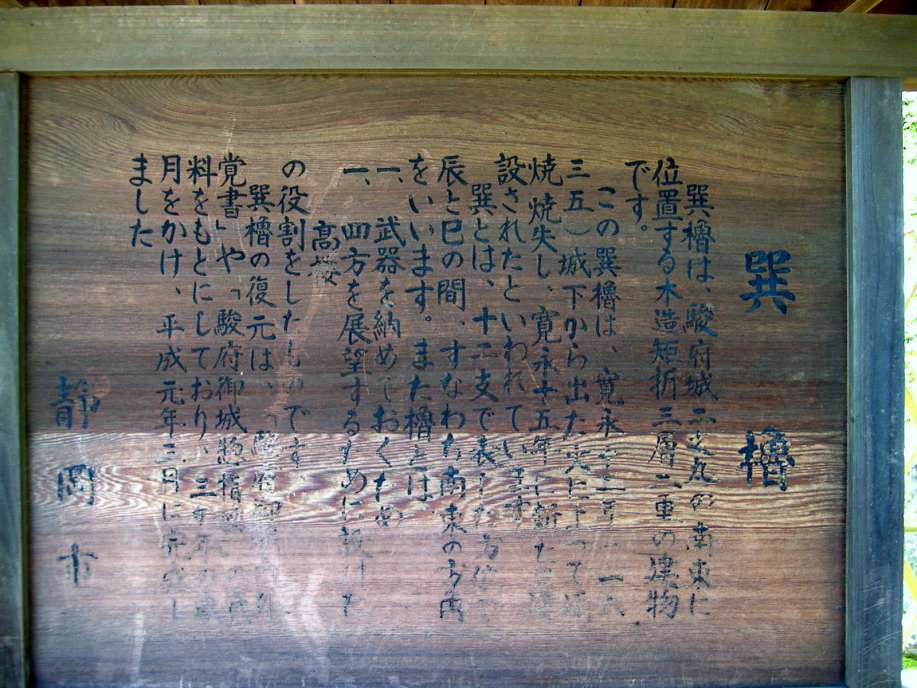 巽櫓
巽櫓は、駿府城二之丸の南東に
位置する木造矩折三層二重の建物
です。
この巽櫓は、寛永十二年（一六
三五）城下から出た火によって
焼失し、寛永十五年に新た
設されたといわれています
巽とは、十二支で表した方位で
辰と巳の間、すなわち南東の方角
をいいます。また櫓とは
一、武器を納めておくため
一、四方を展望するために設けた
高楼
の役割をしたものです
巽櫓の復元は、「駿府御城
覚書」や「駿府御城惣指図
料をもとにしており、三年
月をかけ、平成元年三月に完成し
ました
静岡市